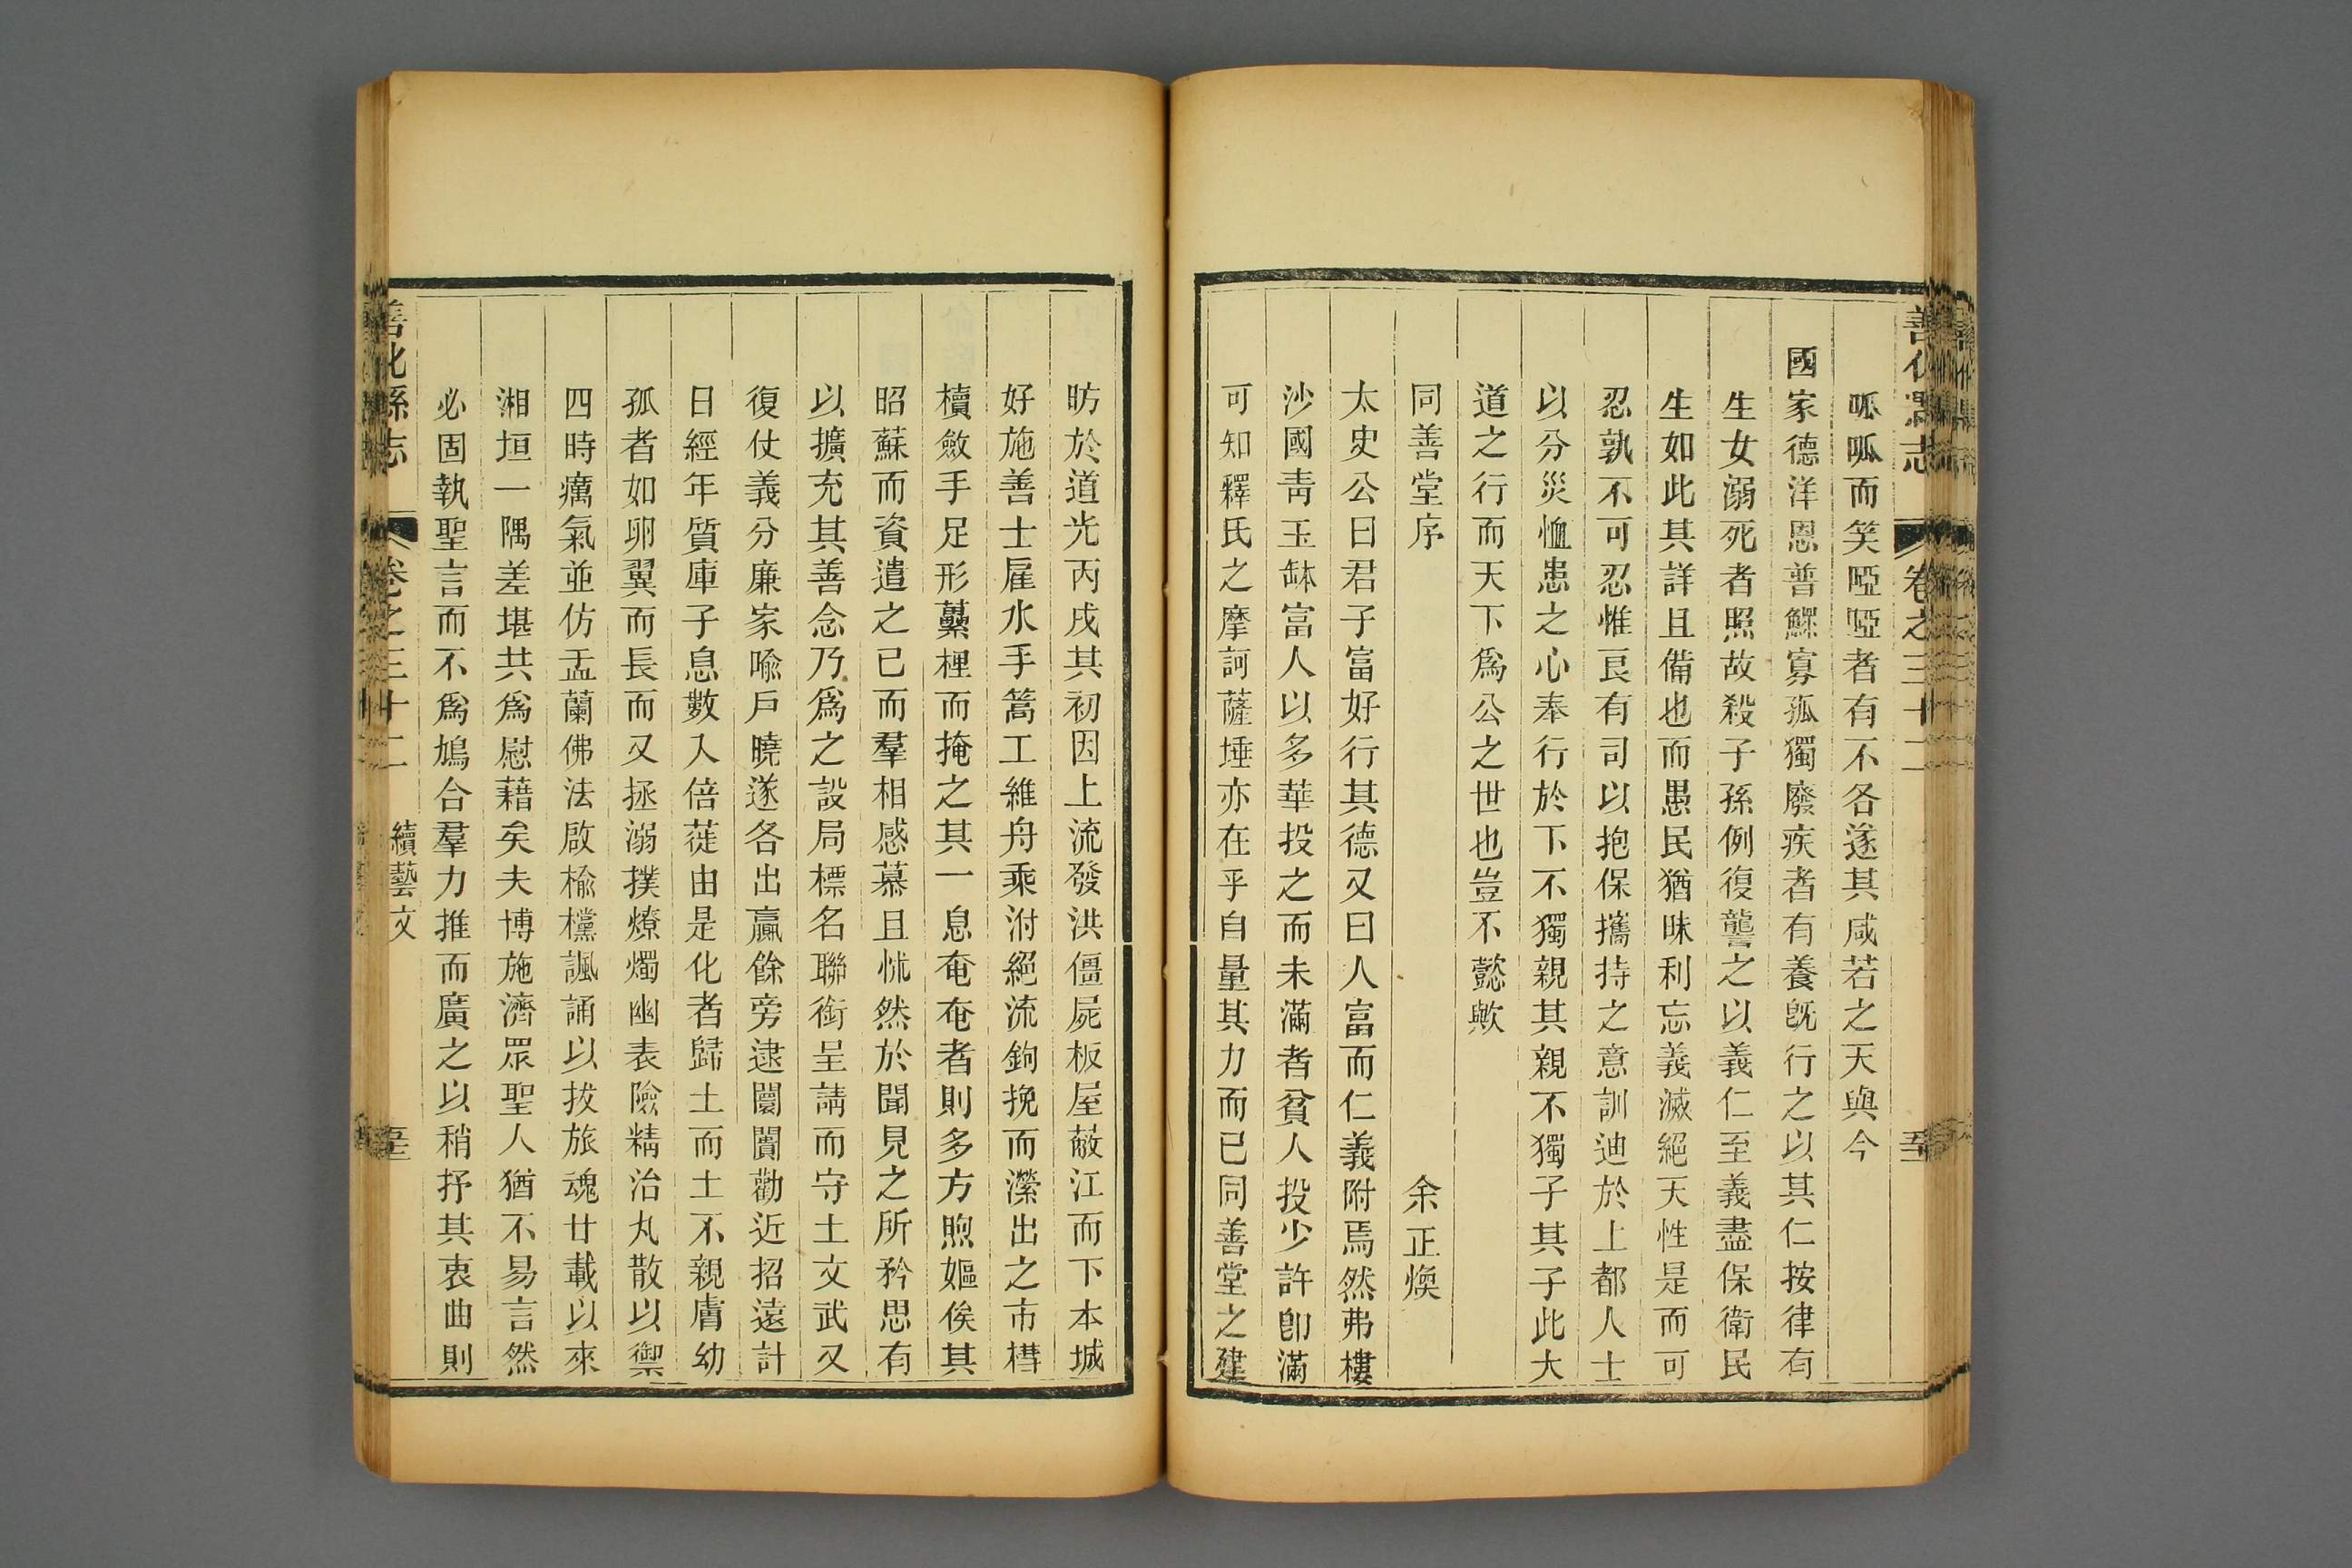 善化縣志
卷之三十二
呱呱而笑啞啞者有不各遂其咸若之天與今
國家德洋恩普鰥寡孤獨廢疾者有養旣行之以其仁按律有
生女溺死者照故殺子孫例復讋之以義仁至義盡保衛民
生如此其詳且備也而愚民猶昧利忘義滅絕天性是而可
忍孰不可忍惟良有司以抱保攜持之意訓迪於上都人士
以分災恤患之心奉行於下不獨親其親不獨子其子此大
道之行而天下爲公之世也豈不懿歟
同善堂序
余正煥
太史公曰君子富好行其德又曰人富而仁義附焉然弗樓
沙國靑玉缽富人以多華投之而未滿者貧人投少許卽滿
可知釋氏之摩訶薩埵亦在乎自量其力而已同善堂之建
昉於道光丙戌其初因上流發洪僵屍板屋蔽江而下本城
好施善士雇水手篙工維舟乘泭絕流鉤挽而灤出之市槥
櫝斂手足形虆梩而掩之其一息奄奄者則多方煦嫗俟其
昭蘇而資遣之已而羣相感慕且怵然於聞見之所矜思有
以擴充其善念乃爲之設局標名聯銜呈請而守土文武又
復仗義分廉家喻戶曉遂各出贏餘旁逮闤闠勸近招遠計
日經年質庫子息數入倍蓰由是化者歸土而土不親膚幼
孤者如卵翼而長而又拯溺撲燎燭幽表險精治丸散以禦
四時癘氣並仿盂蘭佛法啟楡欓諷誦以拔旅魂廿載以來
湘垣一隅差堪共爲慰藉矣夫博施濟眾聖人猶不易言然
必固執聖言而不爲鳩合羣力推而廣之以稍抒其衷曲則
善化縣志
卷之三十二
續藝文